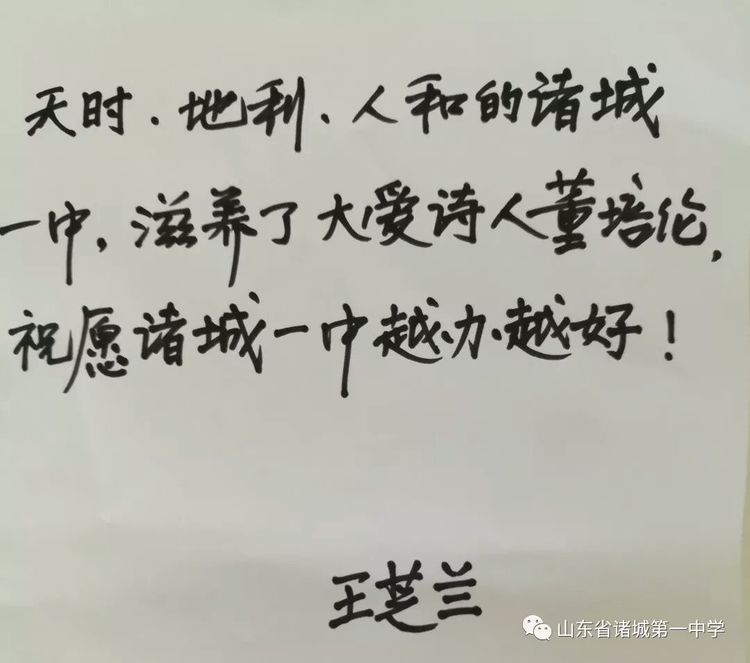 天时、地利、人和的诸城
一中，滋养了大爱诗人董培伦，
祝愿诸城一中越办越好！
王芝兰
山东省诸城第一中学